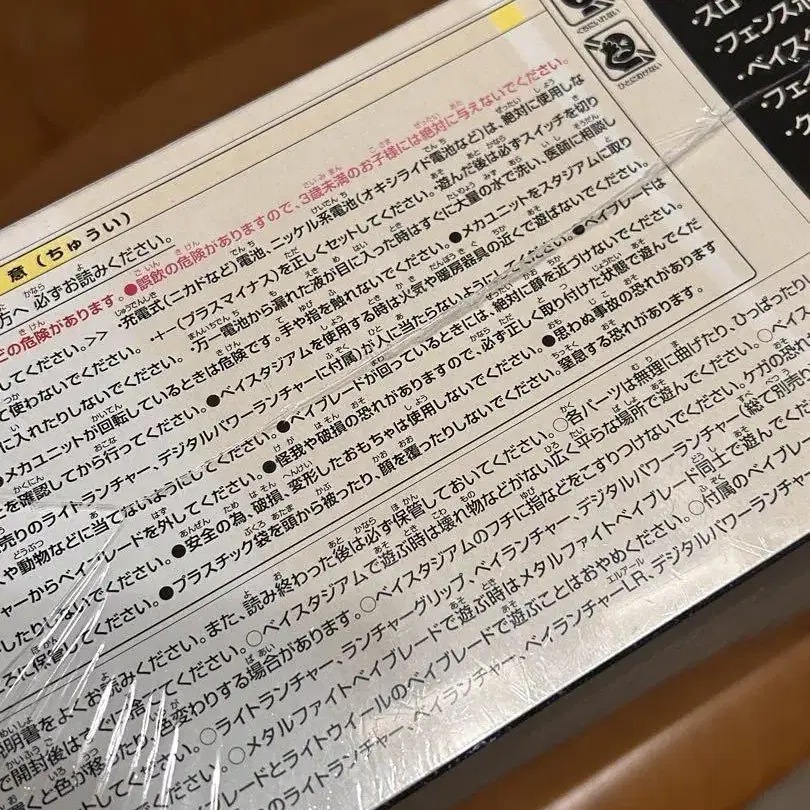 くちにいれない
ひとにむけない
・スロー
・フェンスポ
・ベイスタ
・フェイ
・ク
意(ちゅうい)
方へ 必ずお読みください。
の危険があります。●誤飲の危険がありますので、3歳未満のお子様には絶対に与えないでください。
してください。>> ・充電式(ニカドなど)電池、ニッケル系電池(オキシライド電池など)は、絶対に使用しな
て使わないでください。 ・+-(プラスマイナス)を正しくセットしてください。・遊んだ後は必ずスイッチを切り
に入れたりしないでください。 ・万一電池から漏れた液が目に入った時はすぐに大量の水で洗い、医師に相談し
●メカユニットが回転しているときは危険です。手や指を触れないでください。●メカユニットをスタジアムに取り
を確認してから行ってください。●ベイスタジアムを使用する時は火気や暖房器具の近くで遊ばないでください。
売りのライトランチャー、デジタルパワーランチャーに付属)が人に当たらないようにしてください。●ベイブレードは
や動物などに当てないようにしてください。●ベイブレードが回っているときには、絶対に顔を近づけないでください。
ャーからベイブレードを外してください。●怪我や破損の恐れがありますので、必ず正しく取り付けた状態で遊んでくだ
したりしないでください。●安全の為、破損、変形したおもちゃは使用しないでください。●思わぬ事故の恐れがあります。
ろに保管してください。●プラスチック袋を頭から被ったり、顔を覆ったりしないでください。窒息する恐れがあります。
説明書をよくお読みください。また、読み終わった後は必ず保管しておいてください。○各パーツは無理に曲げたり、ひっぱったり
で開封後はすぐに捨ててください。○ベイスタジアムで遊ぶ時は壊れ物などがない広く平らな場所で遊んでください。○ベイブ
置くと色が移ったり、色変わりする場合があります。○ベイスタジアムのフチに指などをこすりつけないでください。ケガの恐れ
してください。○ライトランチャー、ランチャーグリップ、ベイランチャー、デジタルパワーランチャー(総て別売り
○メタルファイトベイブレードで遊ぶ時はメタルファイトベイブレード同士で遊んでく
ブレードとライトウイールのベイブレードで遊ぶことはおやめください。○付属のベイブレー
のライトランチャー、ベイランチャー、ベイランチャーLR、デジタルパワーランチャ